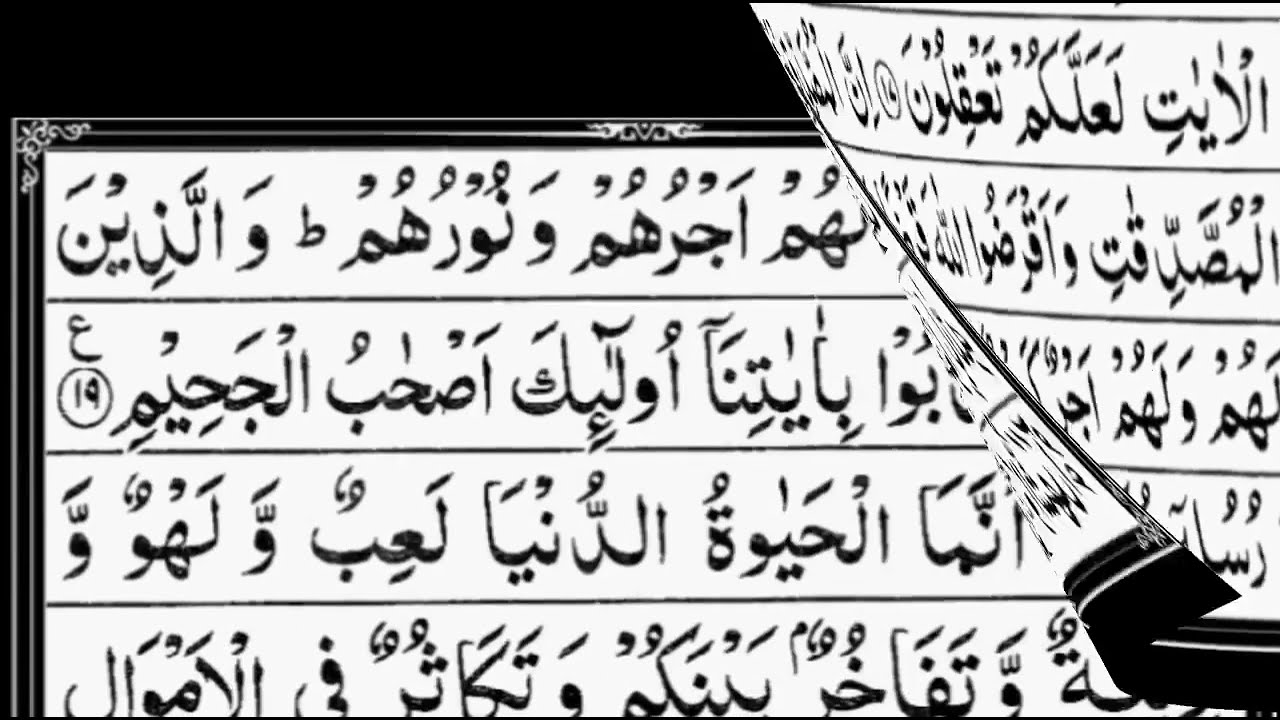 الْاٰيٰتِ لَعَلَّكُمْ تَعْقِلُوْنَ ۝۱۷ اِنَّ
الْمُصَّدِّقٰتِ وَاَقْرَضُوا اللّٰهَ
لَهُمْ وَلَهُمْ اَجْرٌ
لَهُمْ اَجْرُهُمْ وَ نُوْرُهُمْ ؕ وَ الَّذِيْنَ
بِاٰيٰتِنَاۤ اُولٰٓئِكَ اَصْحٰبُ الْجَحِيْمِ ۝۱۹ ع
اَنَّمَا الْحَيٰوةُ الدُّنْيَا لَعِبٌ وَّ لَهْوٌ وَّ
وَّ تَفَاخُرٌۢ بَيْنَكُمْ وَ تَكَاثُرٌ فِي الْاَمْوَالِ